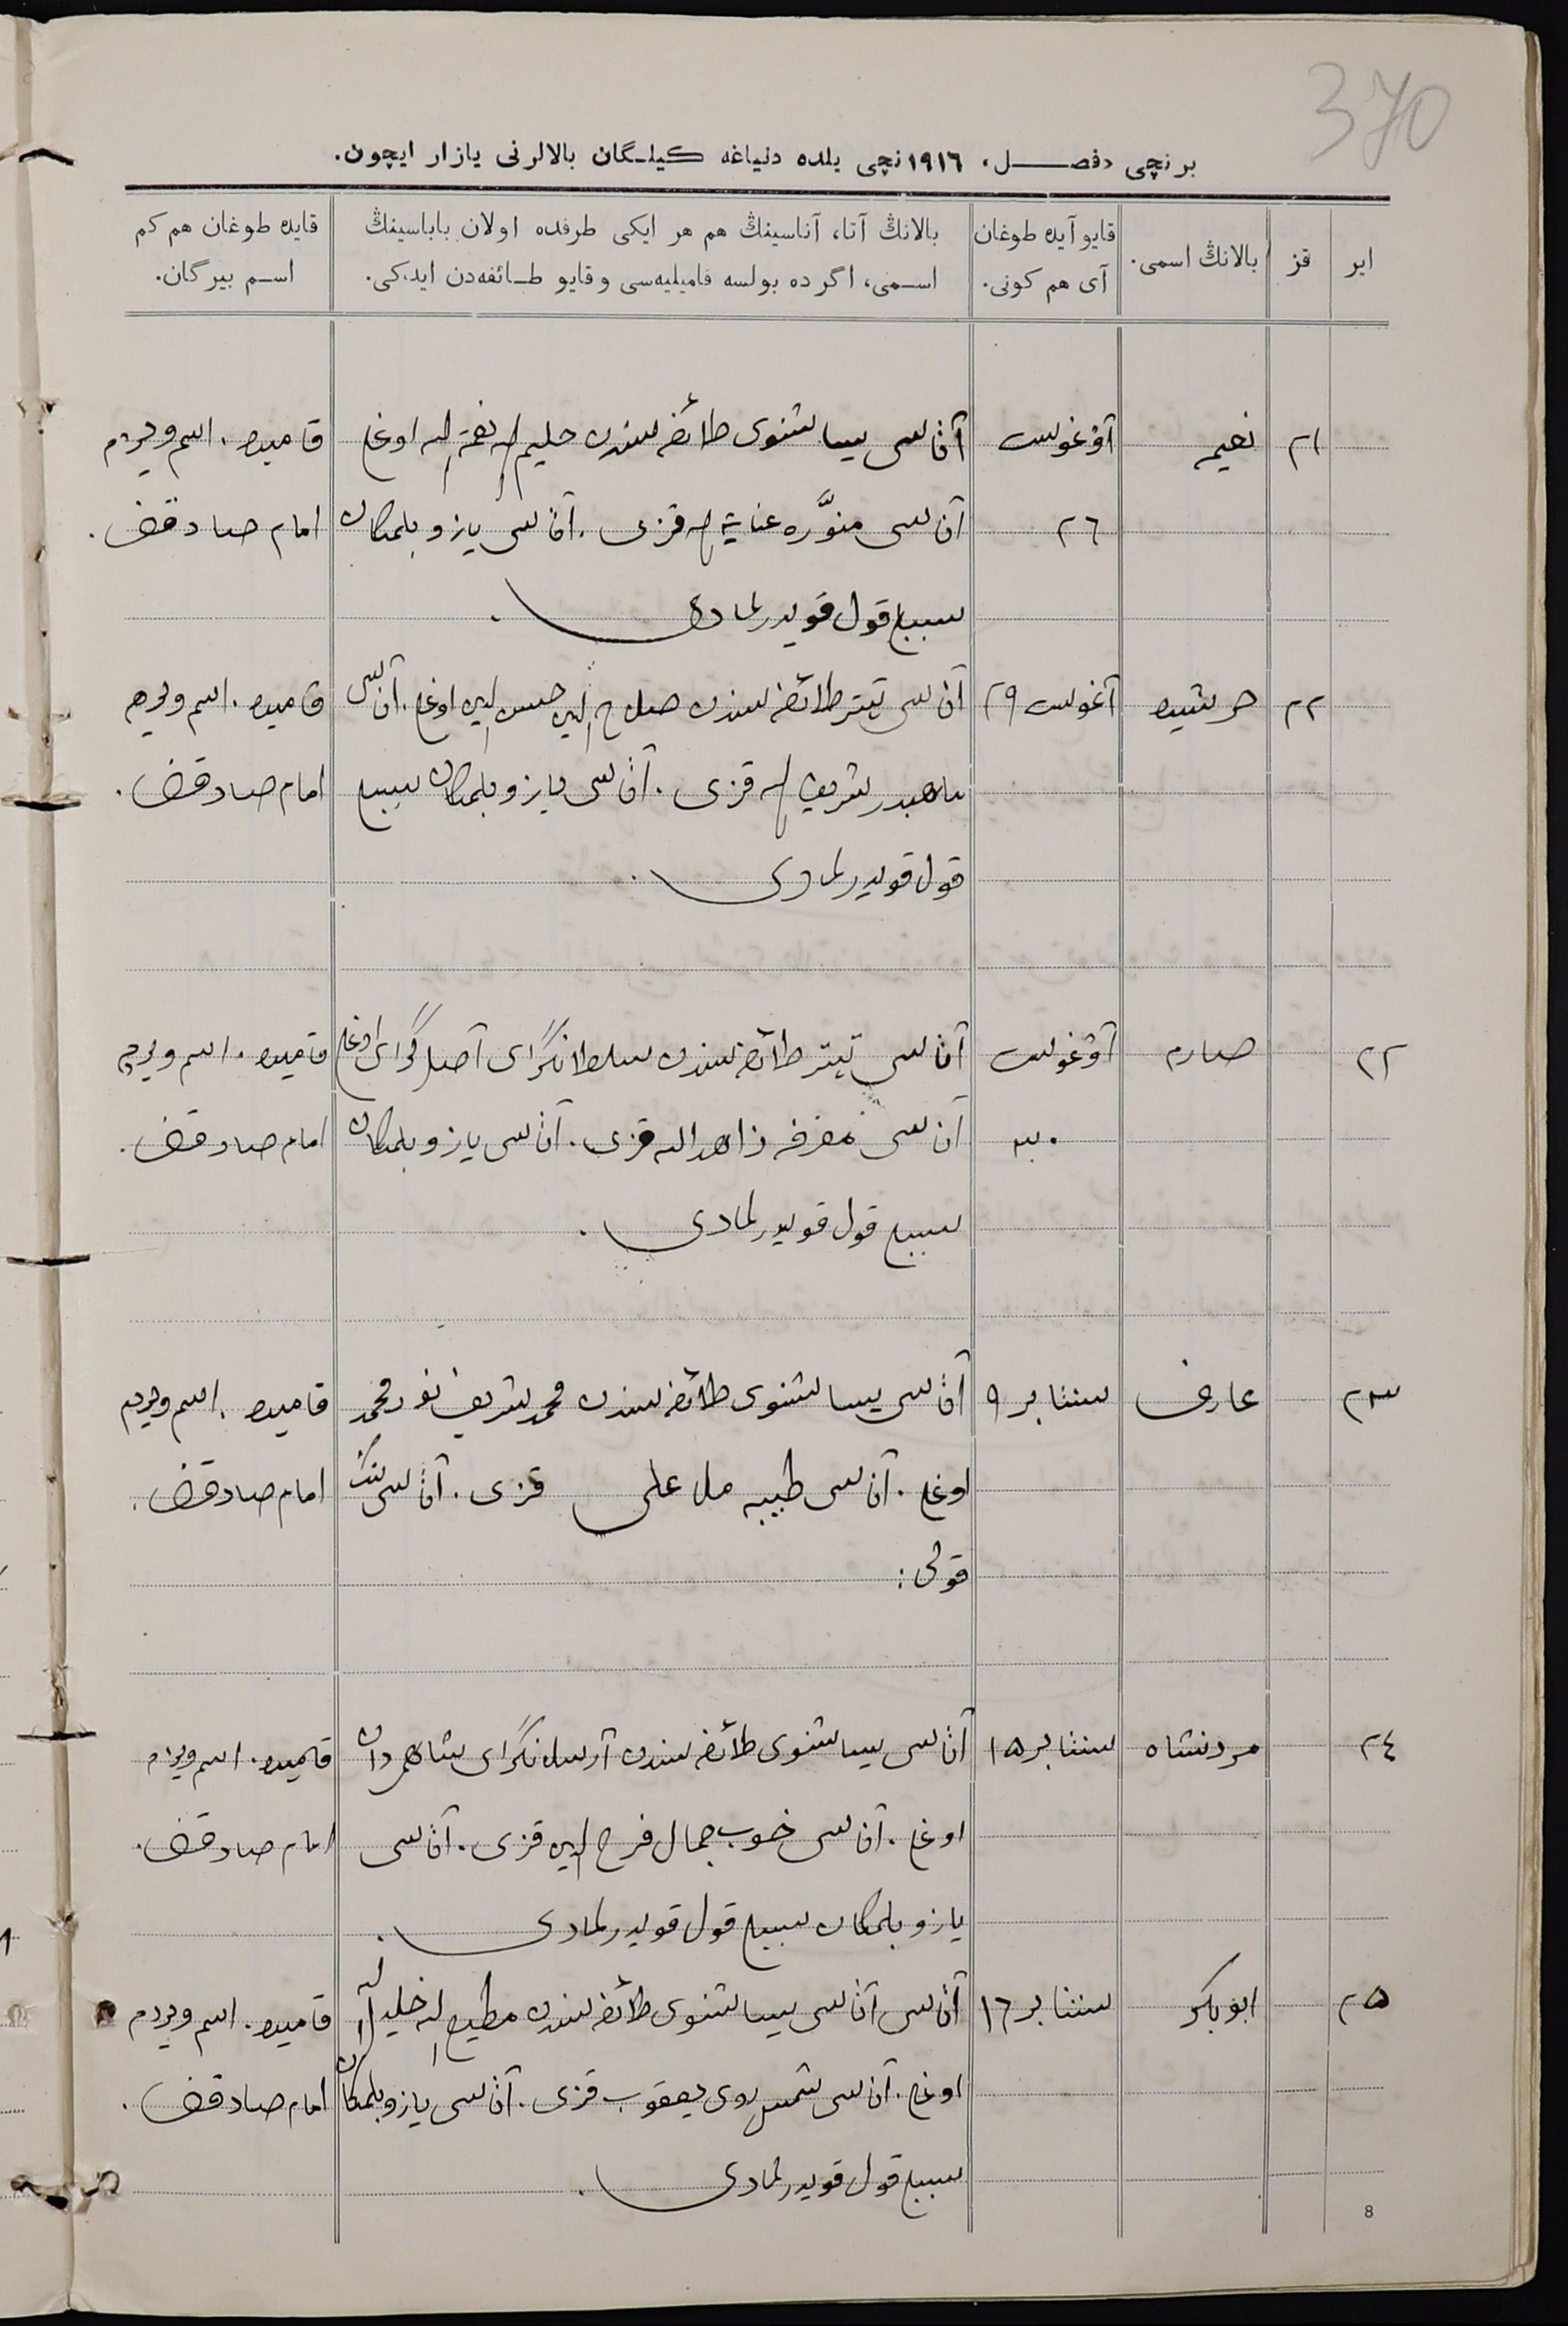 370
برنچی «فصل» ١٩١٦ نچی یلده دنیاغه کیلگان بالالرنی یازار ایچون.
ایر
قز
بالانڭ اسمی.
قایو آیده طوغان
آی هم کونی.
بالانڭ آتا، آناسینڭ هم هر ایکی طرفده اولان باباسینڭ
اسمی، اگر ده بولسه فامیلیه‌سی و قایو طائفه‌دن ایدکی.
قایده طوغان هم کم
اسم بیرگان.
٢١ نعیمه آوغوست آتاسی یساشنوی طائفه‌سندن حلیم الله نعمة الله اوغلی
٢٦ آناسی منوّره عنایة الله قزی. آتاسی یازو بلمکان
سببلی قول قویدرلمادی.
امام صادقف.
٢٢ آغوست ٢٩ آتاسی تیتر طائفه‌سندن صلاح الدین حسن الدین اوغلی. آناسی
شریف الله قزی. آتاسی یازو بلمکان سببلی
قول قویدرلمادی.
امام صادقف.
٢٢ صارم آوغوست آتاسی تیتر طائفه‌سندن سلطانگرای آصلگرای اوغلی
٣٠ آناسی زاهد الله قزی. آتاسی یازو بلمکان
سببلی قول قویدرلمادی.
امام صادقف.
٢٣ عارف سنتابر ٩ آتاسی یساشنوی طائفه‌سندن محمد شریف نور محمد
اوغلی. آناسی طیبه ملا علی قزی. آتاسی‌ننڭ
قولی:
امام صادقف.
٢٤ مردنشاه سنتابر ١٥ آتاسی یساشنوی طائفه‌سندن آرسلانگرای شاهمردان
اوغلی. آناسی خوب جمال فرح الدین قزی. آتاسی
یازو بلمکان سببلی قول قویدرلمادی.
امام صادقف.
٢٥ ابوبکر سنتابر ١٦ آتاسی آتاسی یساشنوی طائفه‌سندن مطیع الله خلیل الله
اوغلی. آناسی شمس روی یعقوب قزی. آتاسی یازو بلمکان
سببلی قول قویدرلمادی.
امام صادقف.
8